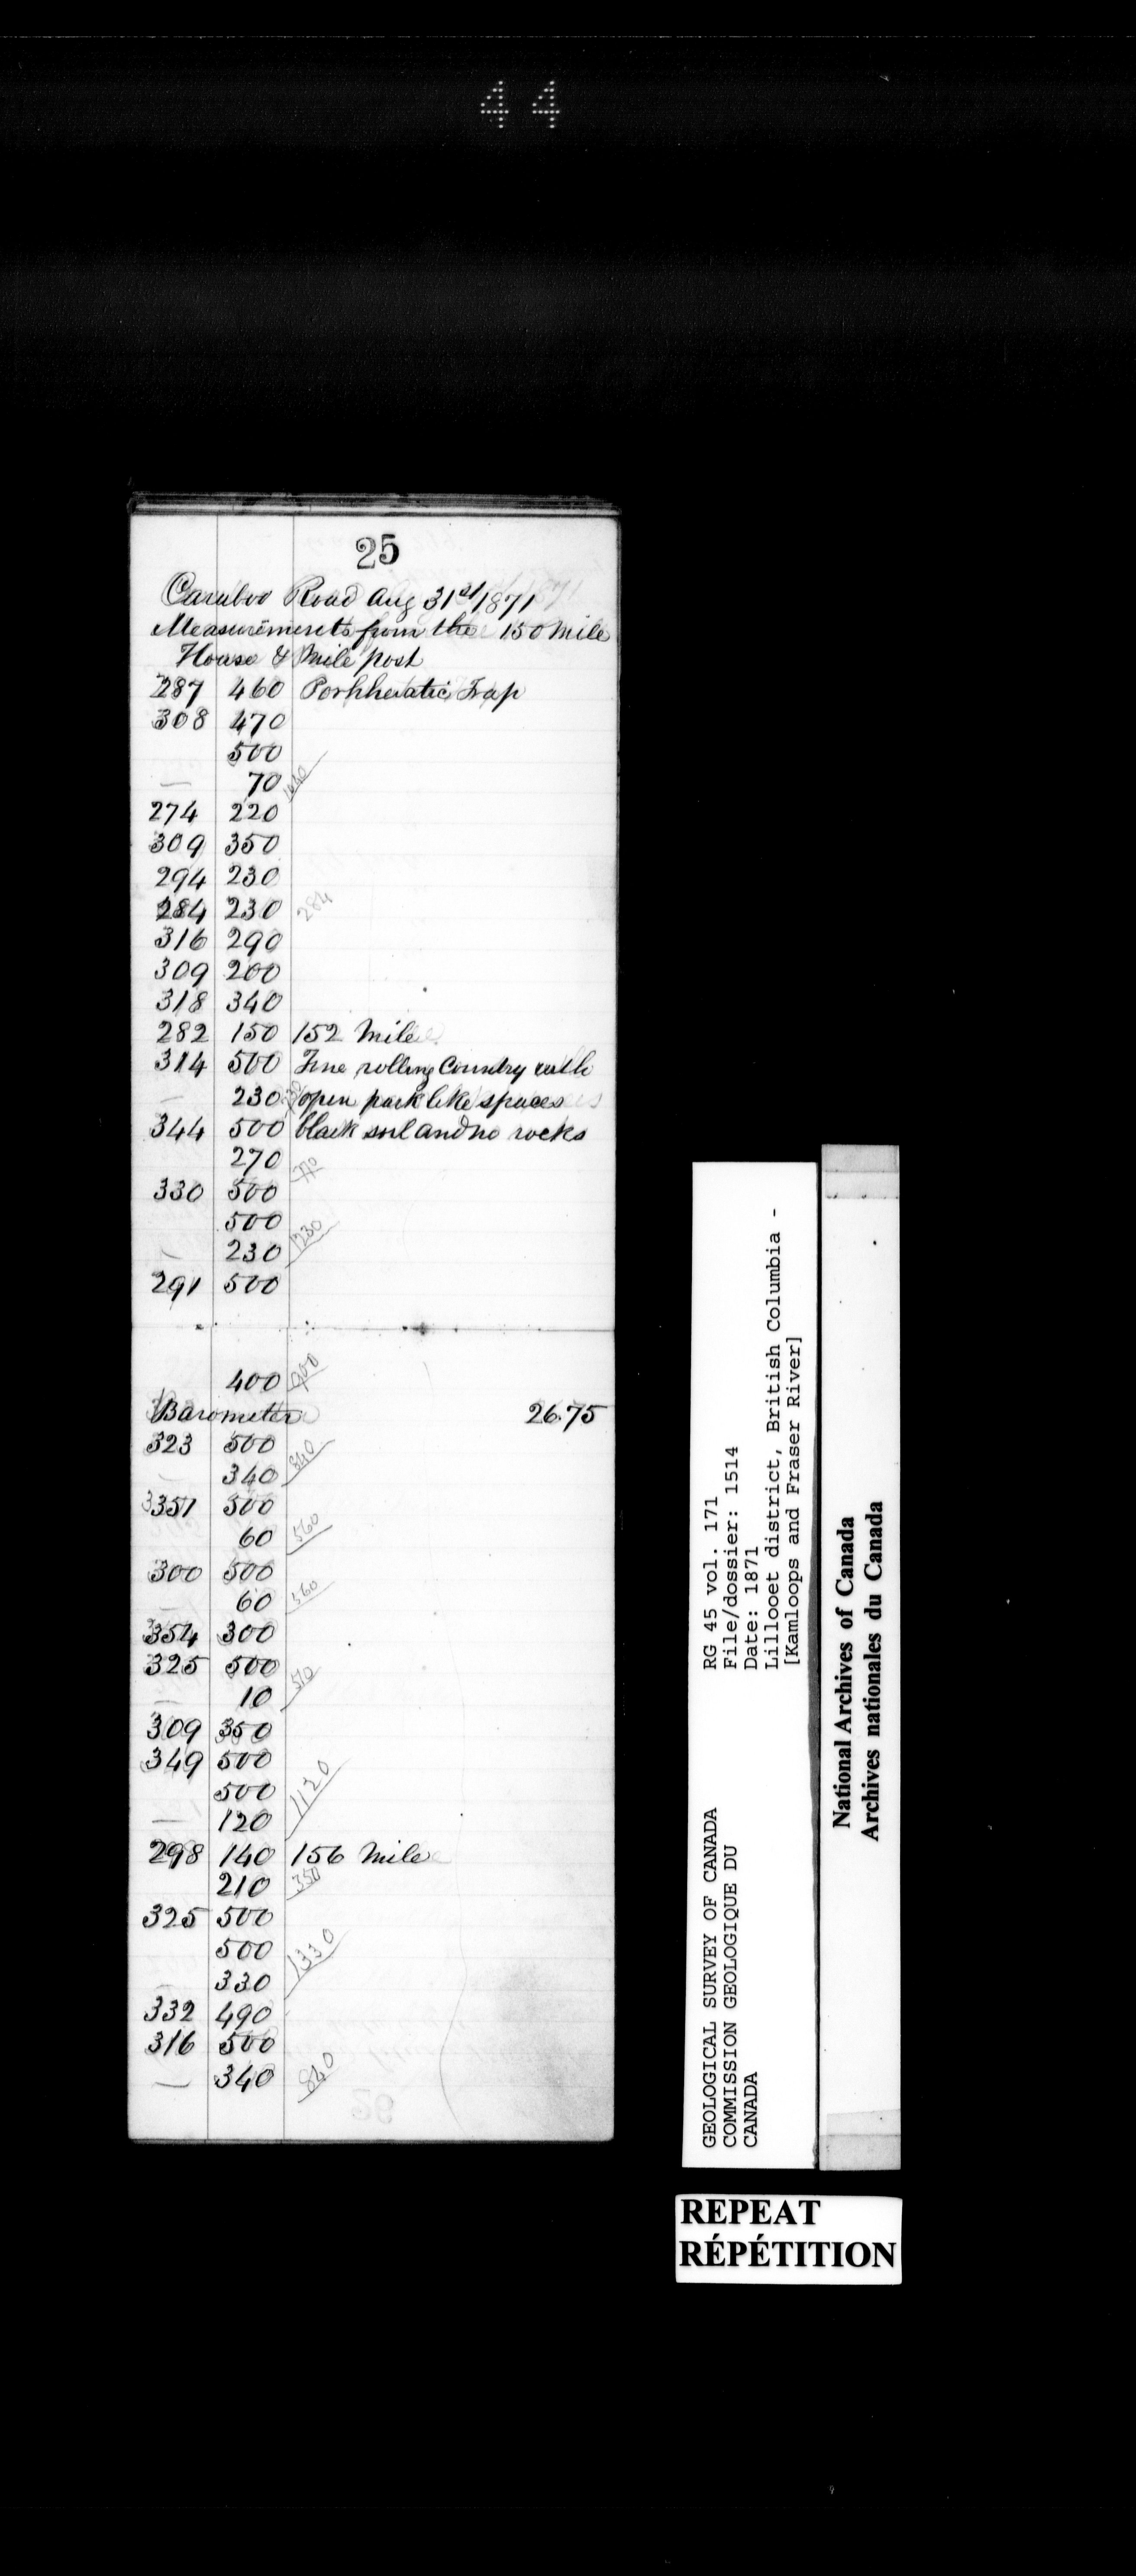 44
25
Caraboo Road Aug 31st/1871
Measurements from the 150 Mile
House & Mile post
287 460 Porpheratic Trap
308 470
500
— 70 1040
274 220
309 350
294 230
284 230 284
316 290
309 200
318 340
282 150 152 Mile
314 500 Fine rolling Country with
— 230 open park like spaces
344 500 black soil and no rocks
270 770
330 500
500
230 1230
291 500
400 900
Barometer 26.75
323 500
340 840
351 500
60 560
300 500
— 60 560
354 300
325 500
— 10 510
309 350
349 500
500
— 120 1120
298 140 156 Mile
210 350
325 500
500
— 330 1330
332 490
316 500
— 340 840
GEOLOGICAL SURVEY OF CANADA
COMMISSION GEOLOGIQUE DU
CANADA
RG 45 vol. 171
File/dossier: 1514
Date: 1871
Lillooet district, British Columbia -
[Kamloops and Fraser River]
National Archives of Canada
Archives nationales du Canada
REPEAT
RÉPÉTITION